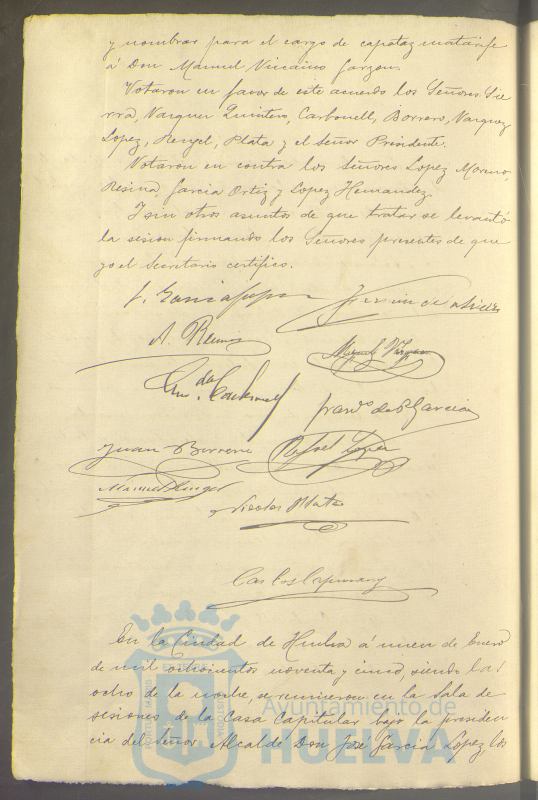 y nombrar para el cargo de capataz matarife
á Don Manuel Vizcaino Garzon.
Votaron en favor de este acuerdo los Señores Sie
rra, Vazquez Quintero, Carbonell, Borrero, Vazquez
Lopez, Rengel, Plata y el Señor Presidente.
Votaron en contra los Señores Lopez Moreno,
Resina, Garcia Ortiz y Lopez Hernandez.
I sin otros asuntos de que tratar se levantó
la sesion firmando los Señores presentes de que
yo el Secretario certifico.
J. Garcia Lopez
A. Resina
Manuel Vazquez
Carbonell
Garcia
Juan Borrero
Rafael Lopez
Manuel Rengel
Nicolas Plata
Carlos
En la Ciudad de Huelva á nueve de Enero
de mil ochocientos noventa y cinco, siendo las
ocho de la noche, se reunieron en la Sala de
sesiones de la Casa Capitular bajo la presiden
cia del Señor Alcalde Don José Garcia Lopez, los
Ayuntamiento de
HUELVA